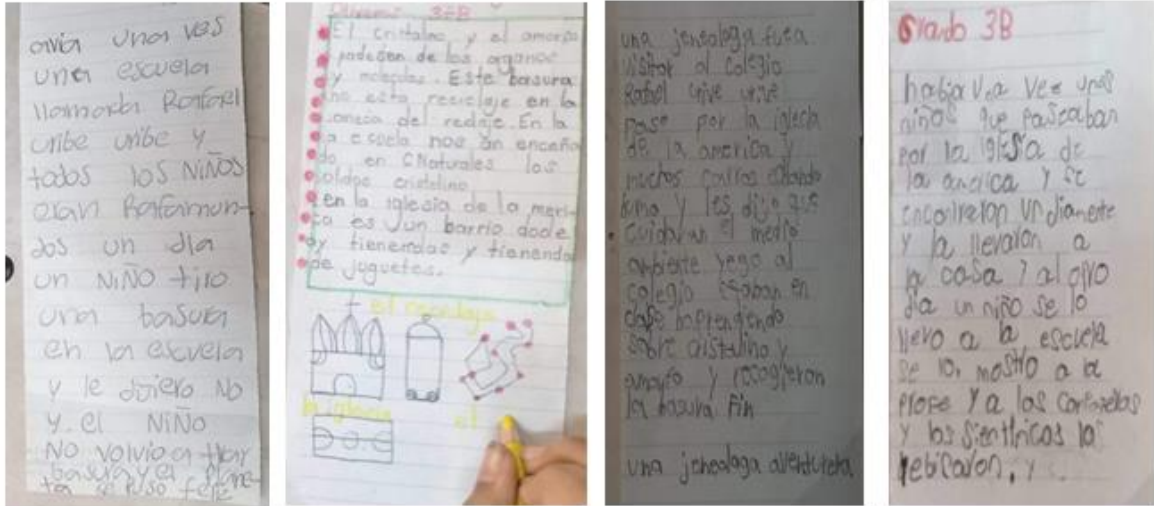 avia una ves
una escuela
llamada Rafael
uribe uribe y
todos los NiÑOS
eran Rafamun-
dos un dia
un NiÑO tiro
una basura
en la escuela
y le dijero NO
y el NiÑO
NO volvio a tirar
basura y el plane-
ta se puso feliz
3°B
El cristalino y el amorfo
padesen de los
y moleculas. Este basura
no esta reciclaje en la
del redaje. En la
a escuela nos an enceña
do en CNaturales los
cristalino
en la iglesia de la meri-
ca es un barrio dode
ay tienendas y tienenda
de juguetes.
el
la iglesia
el
una jenealoga fue a
visitar al colegio
Rafael urive urive
paso por la iglecia
de la america y
muchos carros
fumo y les dijo que
cuidaran el medio
ambiente yego al
colegio estaban en
clase
sobre cristalino y
amorfo y recogieron
la basura Fin
una jenealoga aventurera
Grado 3B
habia una vez unos
niños que paseaban
por la iglesia de
la america y se
encontraron un diamante
y la llevaron a
la casa y al otro
dia un niño se lo
llevo a la escuela
se lo mostro a la
profe y a los
y los sientificos lo